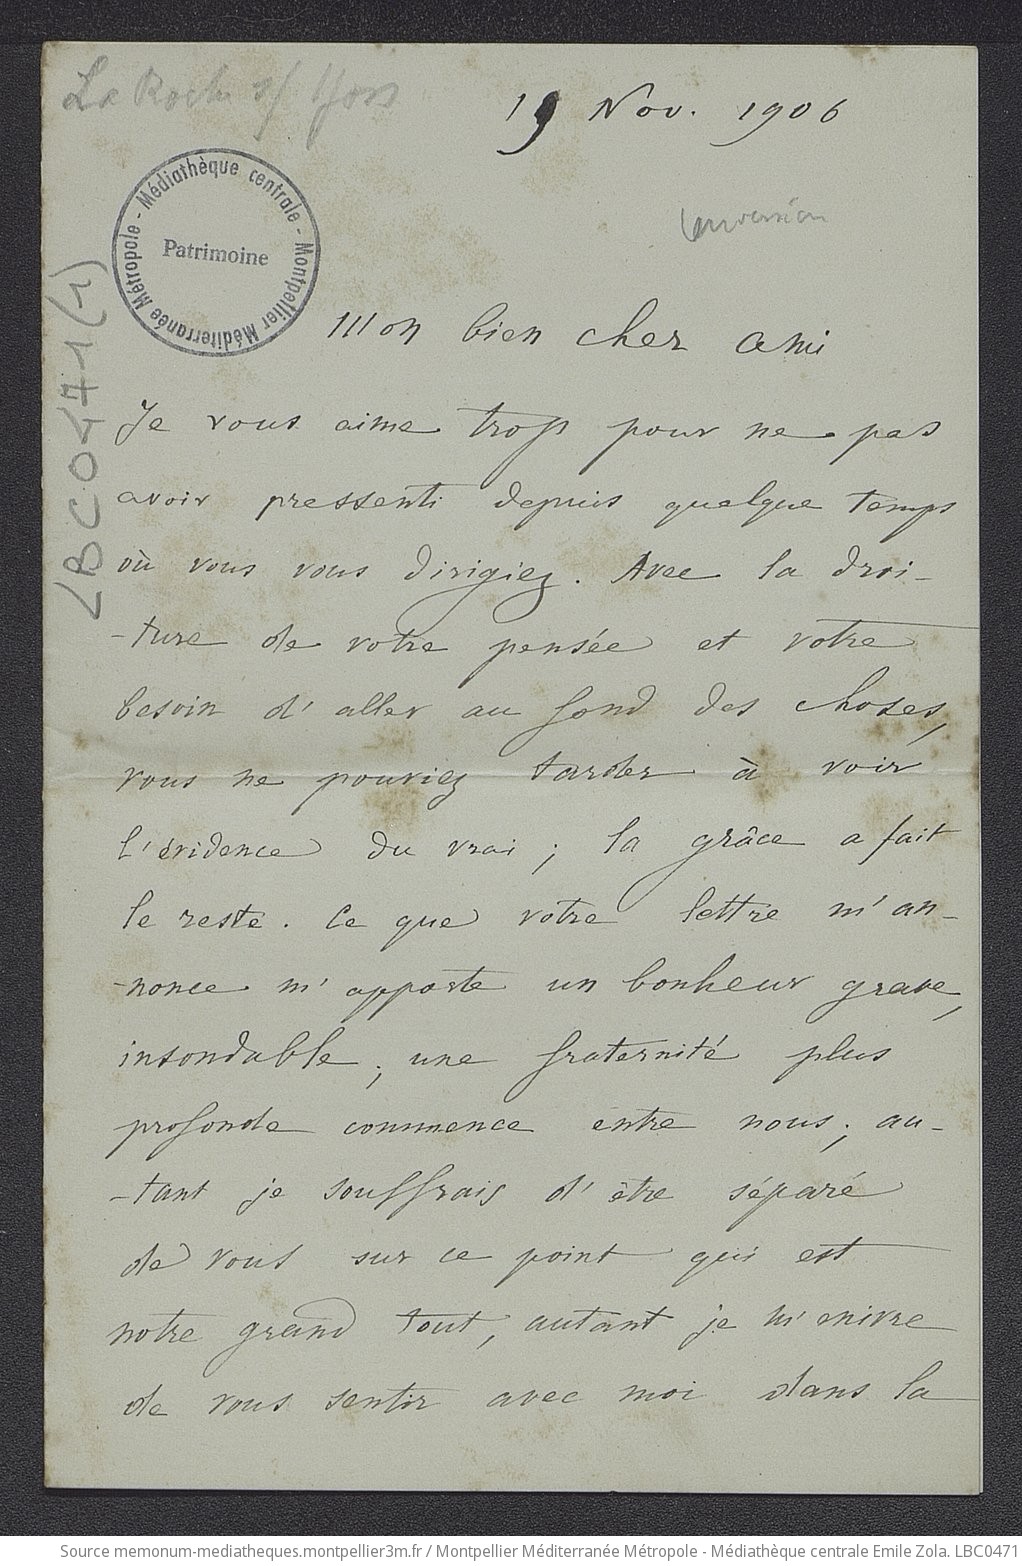 La Roche s/ Yon
19 Nov. 1906
Médiathèque centrale - Montpellier Méditerranée Métropole -
Patrimoine
conversion
LBC0471(1)
Mon bien cher ami
Je vous aime trop pour ne pas
avoir pressenti depuis quelque temps
où vous vous dirigiez. Avec la droi-
-ture de votre pensée et votre
besoin d'aller au fond des choses,
vous ne pouviez tarder à voir
l'évidence du vrai ; la grâce a fait
le reste. Ce que votre lettre m'an-
-nonce m'apporte un bonheur grave,
insondable ; une fraternité plus
profonde commence entre nous ; au-
-tant je souffrais d'être séparé
de vous sur ce point qui est
notre grand tout, autant je m'enivre
de vous sentir avec moi dans la
Source memonum-mediatheques.montpellier3m.fr / Montpellier Méditerranée Métropole - Médiathèque centrale Emile Zola. LBC0471